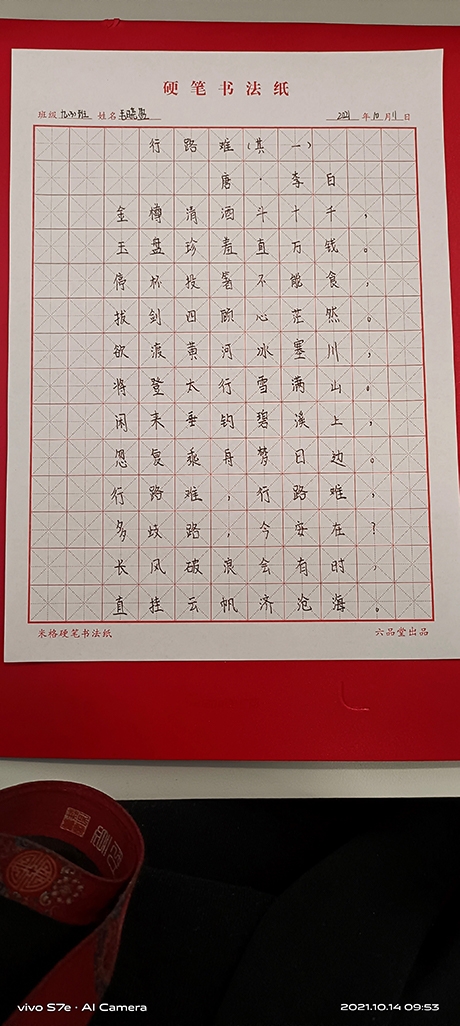 硬笔书法纸
班级 姓名 2021年10月11日
行路难（其一）
唐·李白
金樽清酒斗十千，
玉盘珍羞直万钱。
停杯投箸不能食，
拔剑四顾心茫然。
欲渡黄河冰塞川，
将登太行雪满山。
闲来垂钓碧溪上，
忽复乘舟梦日边。
行路难，行路难，
多歧路，今安在？
长风破浪会有时，
直挂云帆济沧海。
米格硬笔书法纸 六品堂出品
vivo S7e · AI Camera 2021.10.14 09:53